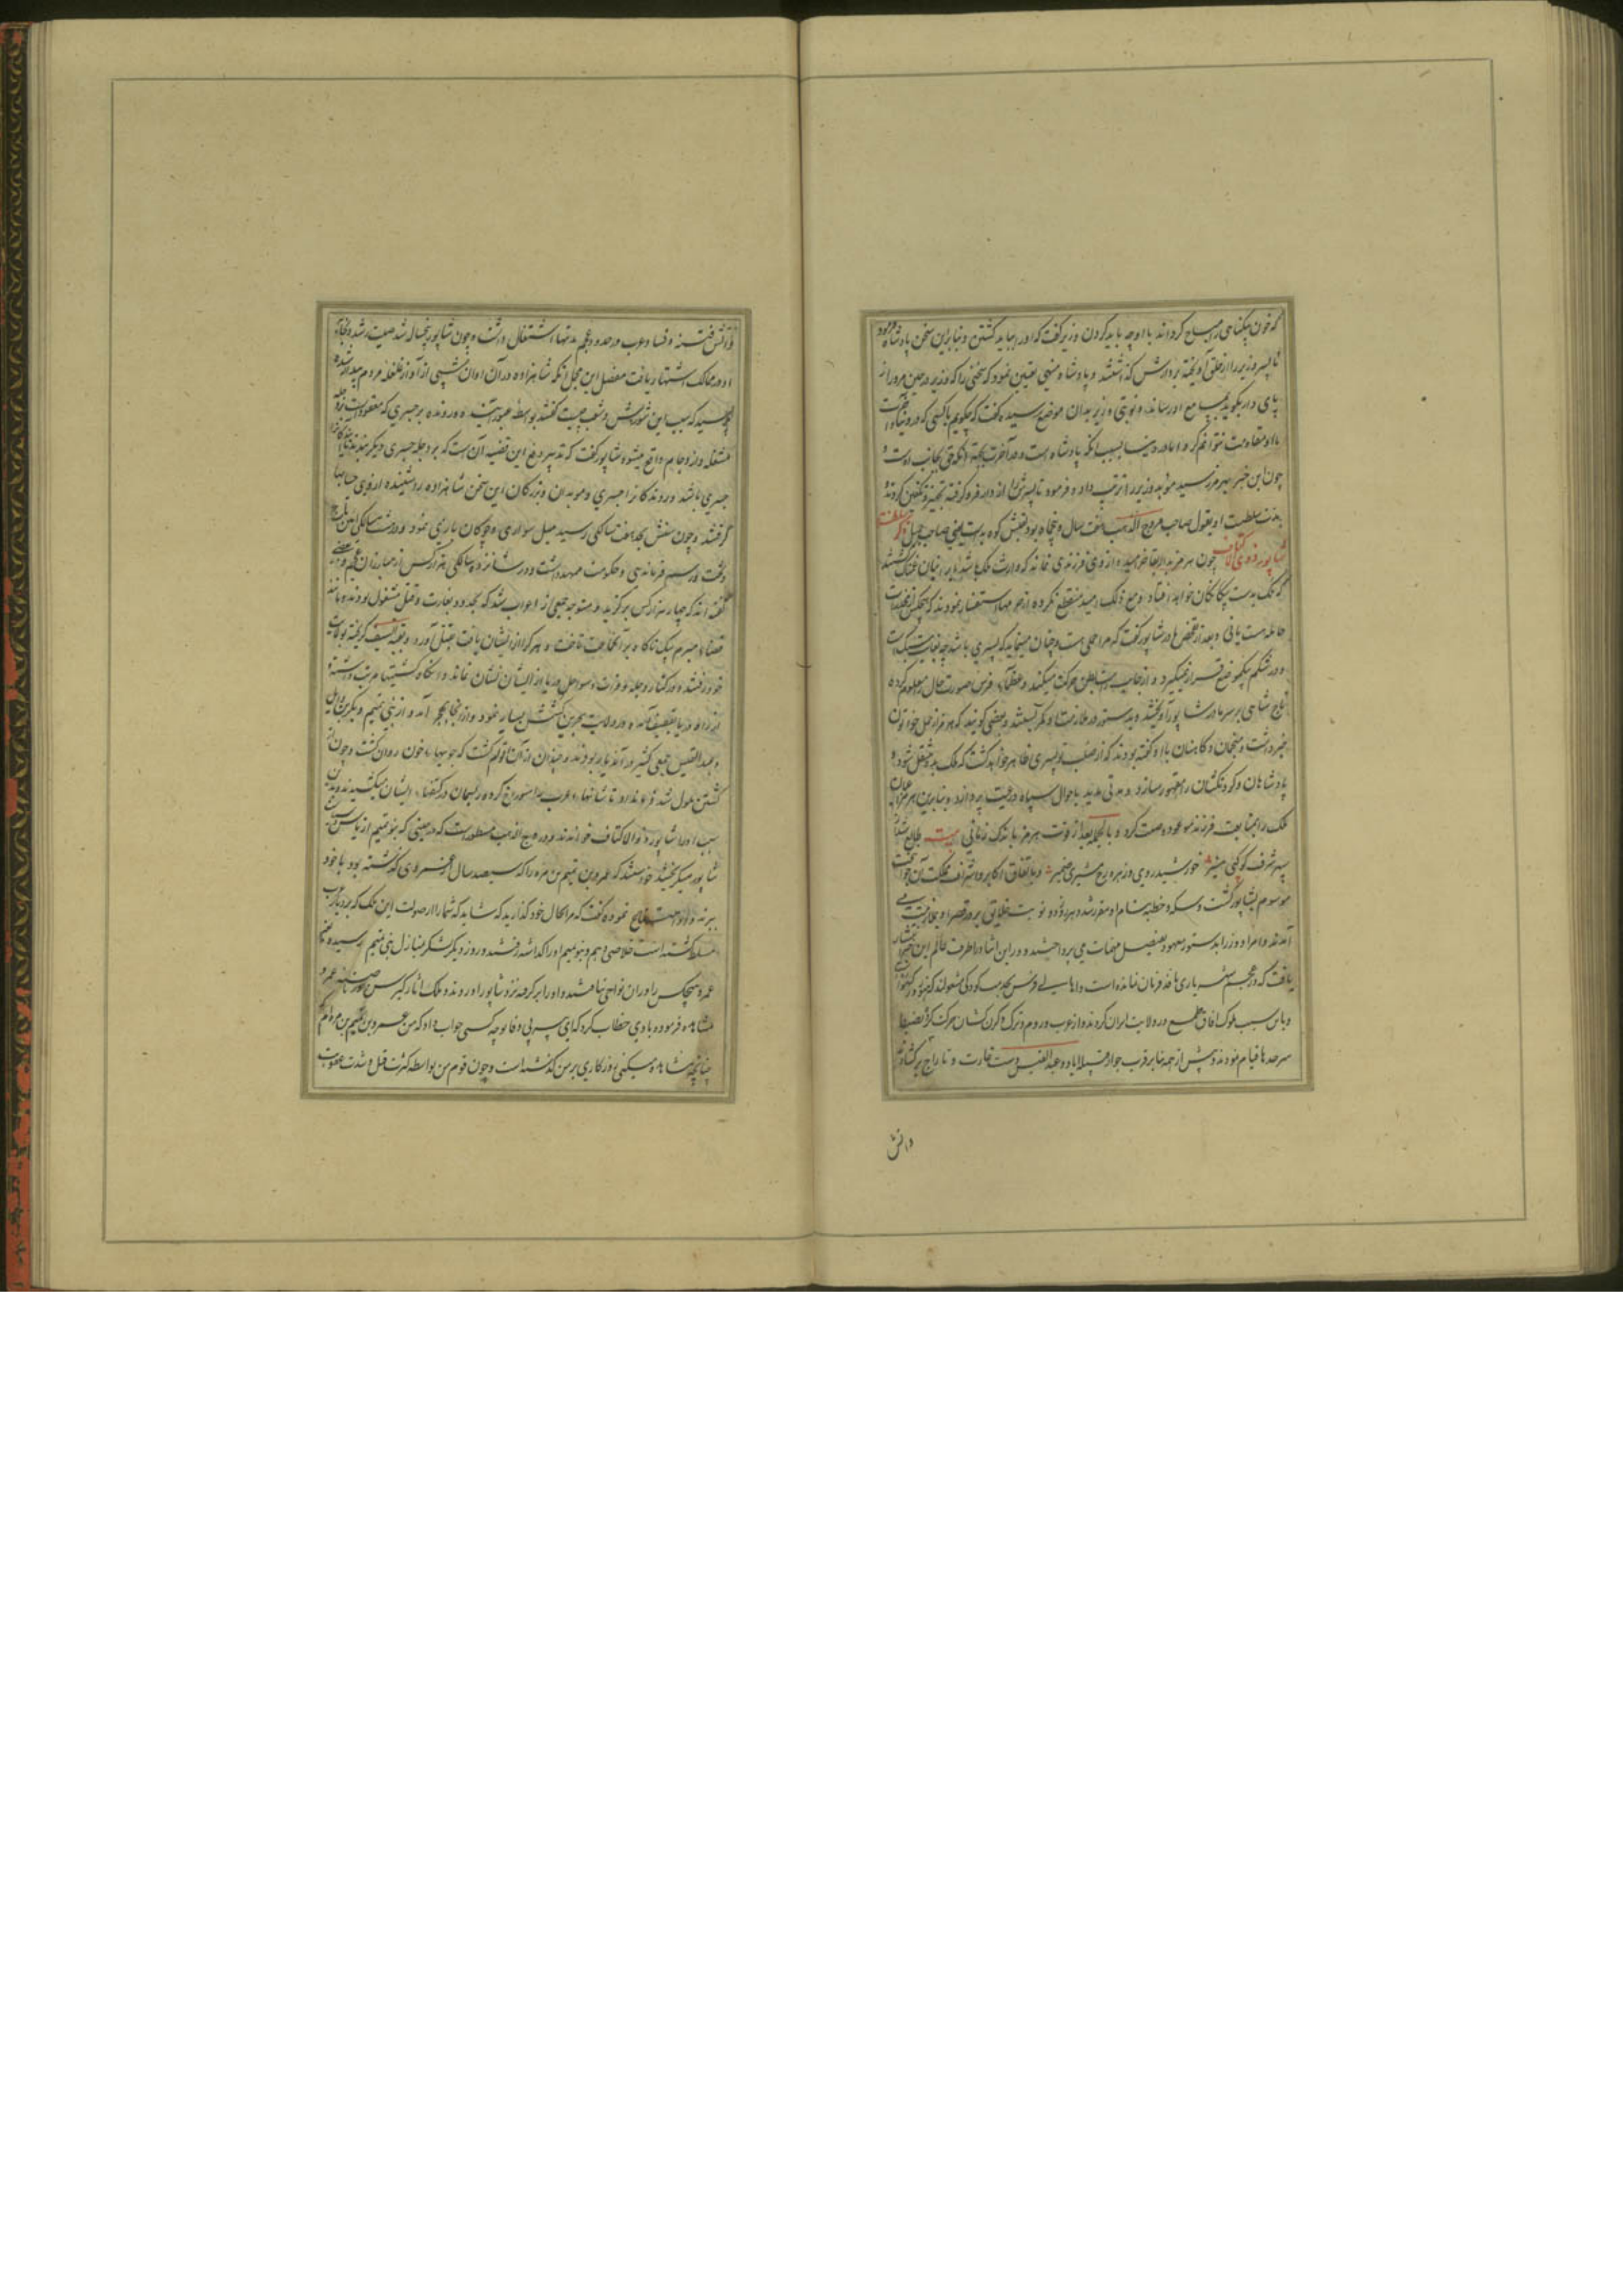 که خون بیگناهی را مباح گرداند با او چه باید کردن وزیر گفت که او را بباید کشتن و بنابرین سخن پادشاه فرمود
تا پسر وزیر را از حلق آویخته بر دارش گذاشتند و پادشاه منهی تعیین نمود که سخنی را که وزیر در حین مرور از
پای دار بگوید بمسامع او رساند و نوبتی وزیر بدان موضع رسیده گفت که چگویم با کسی که در دنیا و آخرت
با او مقاومت نتوانم کرد اما در دنیا بسبب آنکه پادشاه است و در آخرت بجهة آنکه حق بجانب اوست و
چون این خبر بهرمز رسید مؤید وزیر را تربیت داد و فرمود تا پسرش را از دار فرو گرفته تجهیز و تکفین کردند
مدت سلطنت او بقول صاحب مروج الذهب هفت سال و پنجاه بود ذکر سلطنة
شاپور ذوی الاکتاف چون هرمز بدار بقا خرامید و ازوی فرزندی نماند که وارث ملک باشد ایرانیان غمناک گشتند
که ملک بدست بیگانگان خواهد افتاد و مع ذلک امید منقطع نکرده از حرمها استفسار نمودند که هیچکس از شما
حامله هست یا نی و بعد از تفحص مادر شاپور گفت که مرا حملی هست و چنان مینماید که پسری باشد چه بغایت سبک است
و در شکم بیکموضع قرار نمیگیرد و از جانب راست بطن حرکت میکند و عظماء فرس صورت حال معلوم کرده
تاج شاهی بر سر مادر شاپور آویختند و بدستور در ملازمت او کمر بستند و بعضی گویند که هرمز از حمل خواتون
خبر داشت و منجمان و کاهنان با او گفته بودند که از صلب تو پسری ظاهر خواهد گشت که ملک بدو منتقل شود و
پادشاهان و گردنکشان را مقهور سازد و مدتی مدید باحوال سپاه و رعیت پردازد و بنابرین هرمز اعیان
ملک را بمتابعت فرزند موعود وصیت کرده بالجمله بعد از فوت هرمز باندک زمانی بیت طالع شد از
سپهر شرف کوکبی منیر خورشید روی و زهره رخ و مشتری ضمیر و باتفاق اکابر و اشراف مملکت آن جوانبخت
موسوم بشاپور گشت و سکه و خطبه بنام او مقرر شده هر روز دو نوبت خلایق بر در قصر او بخدمت می
آمدند و امرا و وزرا بدستور معهود بفیصل مهمات می پرداختند و در این اثنا در اطراف عالم این خبر انتشار
یافت که در عجم شهریاری نافذ فرمان نمانده است و اهالی فرس بحرمت کودکی مشغولند که هنوز در گهواره است
و باین سبب ملوک آفاق طمع در ولایت ایران کردند و از عرب و روم و ترک گردن کشان حرکت کرده بضبط
سرحدها قیام نمودند و پیش از همه بنابر قرب جوار قبیله ایاد و عبدالقیس دست بغارت و تاراج برگشادند
و آتش
و آتش فتنه و فساد عرب در حدود عجم مدتها اشتعال داشت و چون شاپور پنجساله شد صیت رشد و نجابت
او در ممالک اشتهار یافت مفصل این مجمل آنکه شاهزاده در آن اوان شبی از آواز غلغله مردم بیدار شده
پرسید که سبب این شورش و شغب چیست گفتند بواسطه عبور آینده و رونده بر جسری که معقود است بر دجله
مشغله و ازدحام واقع میشود شاپور گفت که تدبیر دفع این قضیه آن است که بر دجله جسری دیگر بندند تا آیندگان را
جسری باشد و روندگان را جسری و موبدان و بزرگان این سخن شاهزاده را پسندیده ازوی حسابها
گرفتند و چون سنش بحد هفت سالگی رسید میل سواری و چوگان بازی نمود و در هشت سالگی آیین تاج
و تخت و رسم فرماندهی و حکومت ممهد داشت و در شانزده سالگی هزار کس از مبارزان عجم و بعضی
گفته اند که چهار هزار کس برگزید و متوجه جمعی از اعراب شد که بحدود بغارت و قتل مشغول بودند و مانند
قضاء مبرم بیک ناگاه بر آنجماعت تاخت و هر کرا از ایشان یافت بقتل آورد و بقیة السیف گریخته بولایت
خود رفتند و در کنار دجله و فرات و سواحل دریا از ایشان نشان نماند و آنگاه کشتیها مرتب داشته
از راه دریا بقطیف آمد و در ولایت بحرین کشش بسیار نمود و از آنجا بهجر آمد و از بنی تمیم و بکر بن وایل
و عبدالقیس جمعی کثیر در آن دیار بودند و چندان از آن اقوام کشت که جویهاء خون روان گشت و چون از
کشتن ملول شد فرمود تا شانهاء عرب را سوراخ کرده ریسمان در کتفهاء ایشان میکشیدند و بدین
سبب او را شاپور ذوالاکتاف خواندند و در مروج الذهب مسطور است که در حینی که بنو تمیم از باس و سطوت
شاپور میگریختند خواستند که عمرو بن تمیم بن مره را که سیصد سال از عمر وی گذشته بود با خود
ببرند و او نموده گفت که مرا بحال خود گذارید که شاید که شما را از صولت این ملک که بر دیار عرب
مسلط گشته است خلاصی دهم و بنو تمیم او را گذاشته رفتند و روز دیگر لشکر بمنازل بنی تمیم رسیده بغیر
عمرو هیچکس را در آن نواحی نیافتند و او را برگرفته نزد شاپور آوردند و ملک آثار کبر سن در عمرو
مشاهده فرموده با وی خطاب کرد که ای پیر تو چه کسی جواب داد که من عمرو بن تمیم بن مره ام
چنانچه مشاهده میکنی روزگاری بر من گذشته است و چون قوم من بواسطه کثرت قتل و شدت عقوبت